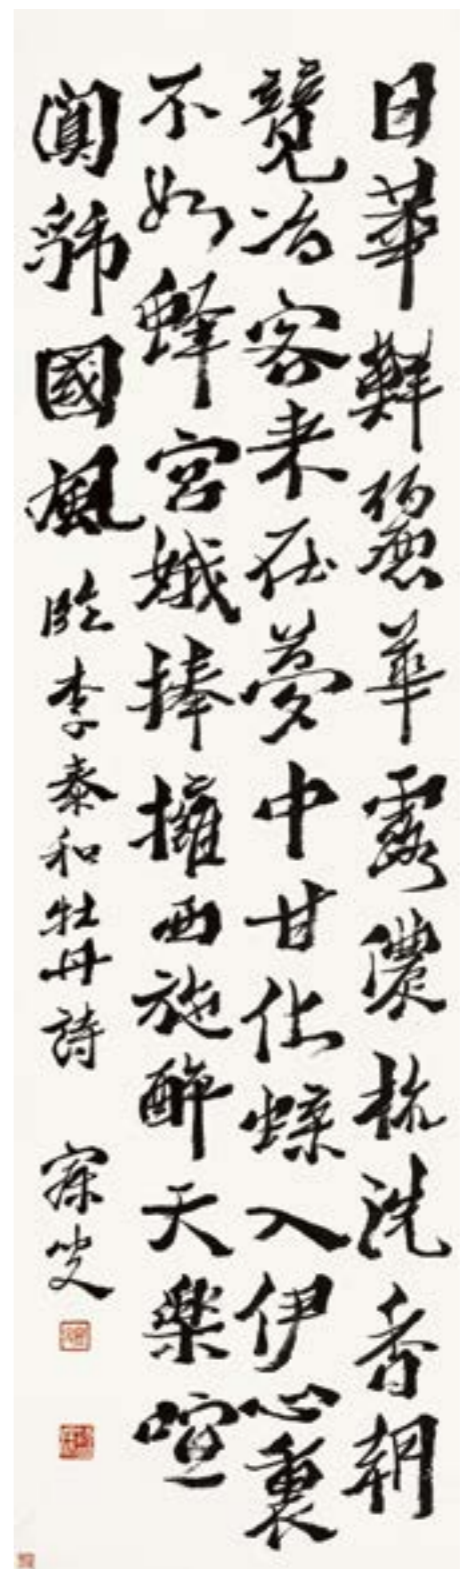 日華鮮華露儂梳洗香朝
冶容来在夢中甘化蝶入伊心裏
不如蜂宮娥捧擁西施醉天樂喧
闐號國風 臨李泰和牡丹詩 寐叟